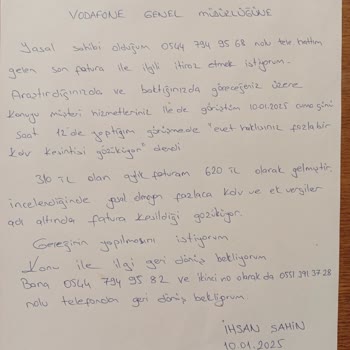 VODAFONE GENEL MÜDÜRLÜĞÜNE
Yasal sahibi olduğum 0544 794 95 68 nolu tele hattım
gelen son fatura ile ilgili itiraz etmek istiyorum.
Araştırdığınızda ve baktığınızda göreceğiniz üzere
Konuyu müşteri hizmetleriniz ile de görüştüm 10.01.2025 cuma günü
saat 12'de yaptığım görüşmede "evet haklısınız fazla bir
Kdv kesintisi gözüküyor" dendi
310 TL olan aylık faturam 620 TL olarak gelmiştir.
incelendiğinde fazlaca kdv ve ek vergiler
adı altında fatura kesildiği gözüküyor.
Gereğinin yapılmasını istiyorum
Konu ile ilgi geri dönüş bekliyorum
Bana 0544 794 95 82 ve ikinci no olarak da 0551 291 37 28
nolu telefondan geri dönüş bekliyorum
İHSAN SAHİN
10.01.2025